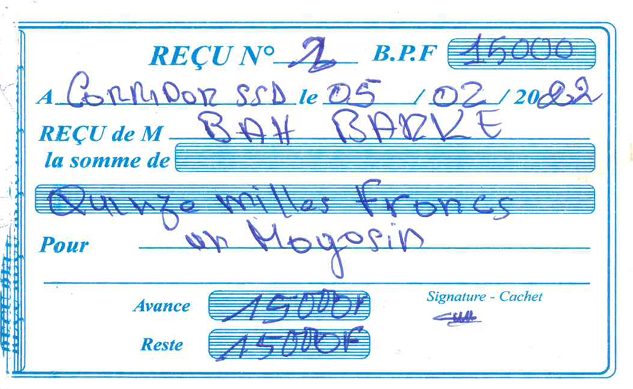 REÇU N° 2 B.P.F 15000
A CORRIDOR SSD le 05 / 02 / 2022
REÇU de M BAH BARKE
la somme de
Quinze milles Francs
Pour un Magasin
Avance 15000F
Signature - Cachet
Reste 15000F